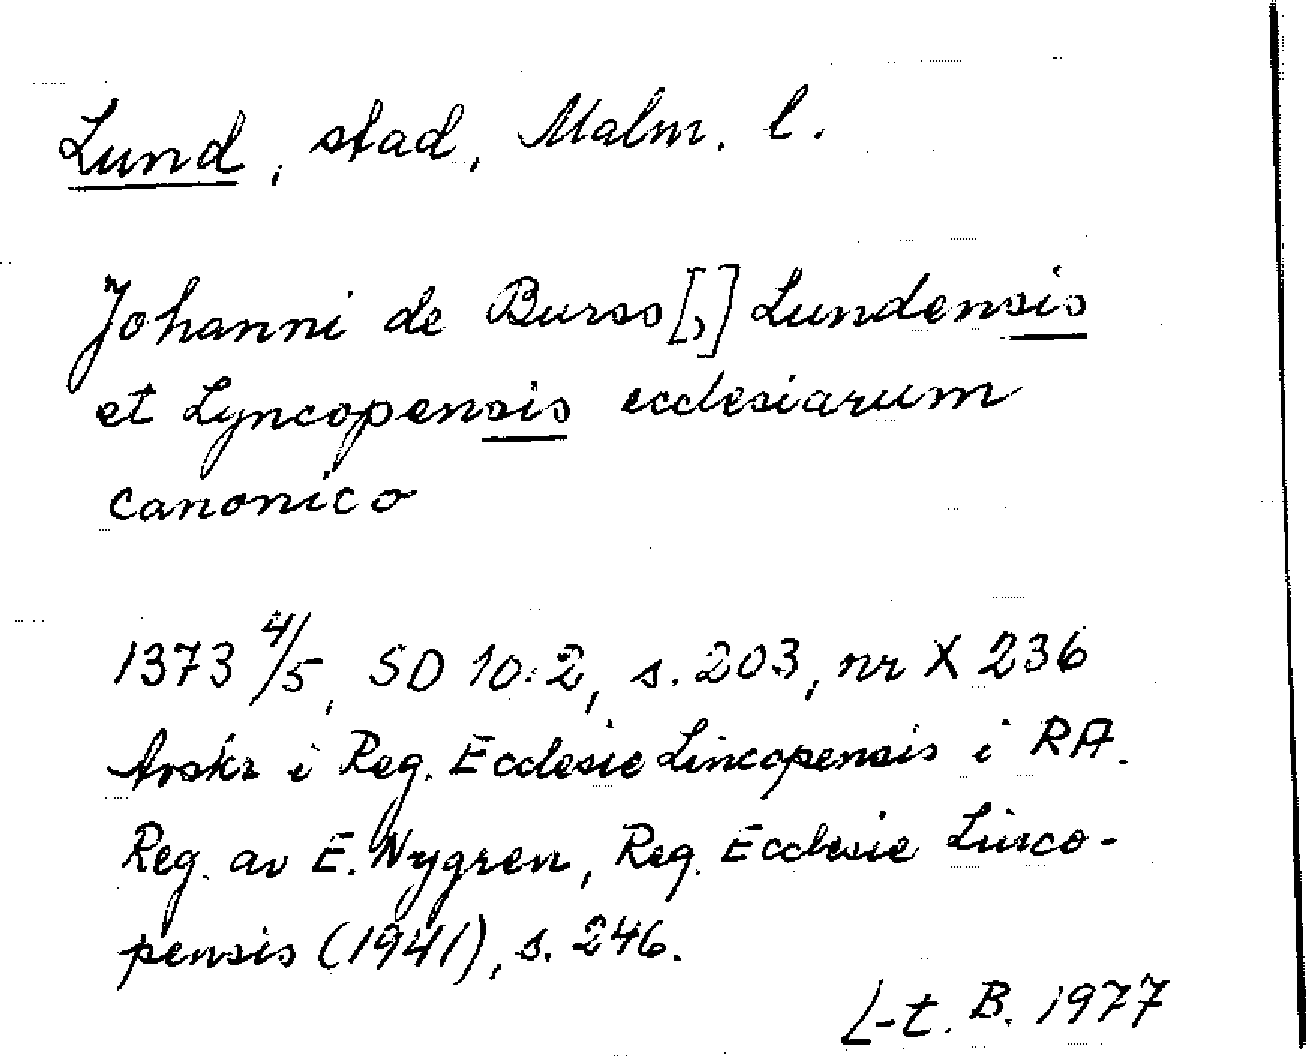 Lund, stad, Malm. l.
Johanni de Burso[,] Lundensis
et Lyncopensis ecclesiarum
canonico
1373 4/5, SD 10:2, s. 203, nr X 236
Avskr i Reg. Ecclesie Lincopensis i RA.
Reg. av E. Nygren, Reg. Ecclesie Linco-
pensis (1941), s. 246.
L-t. B. 1977